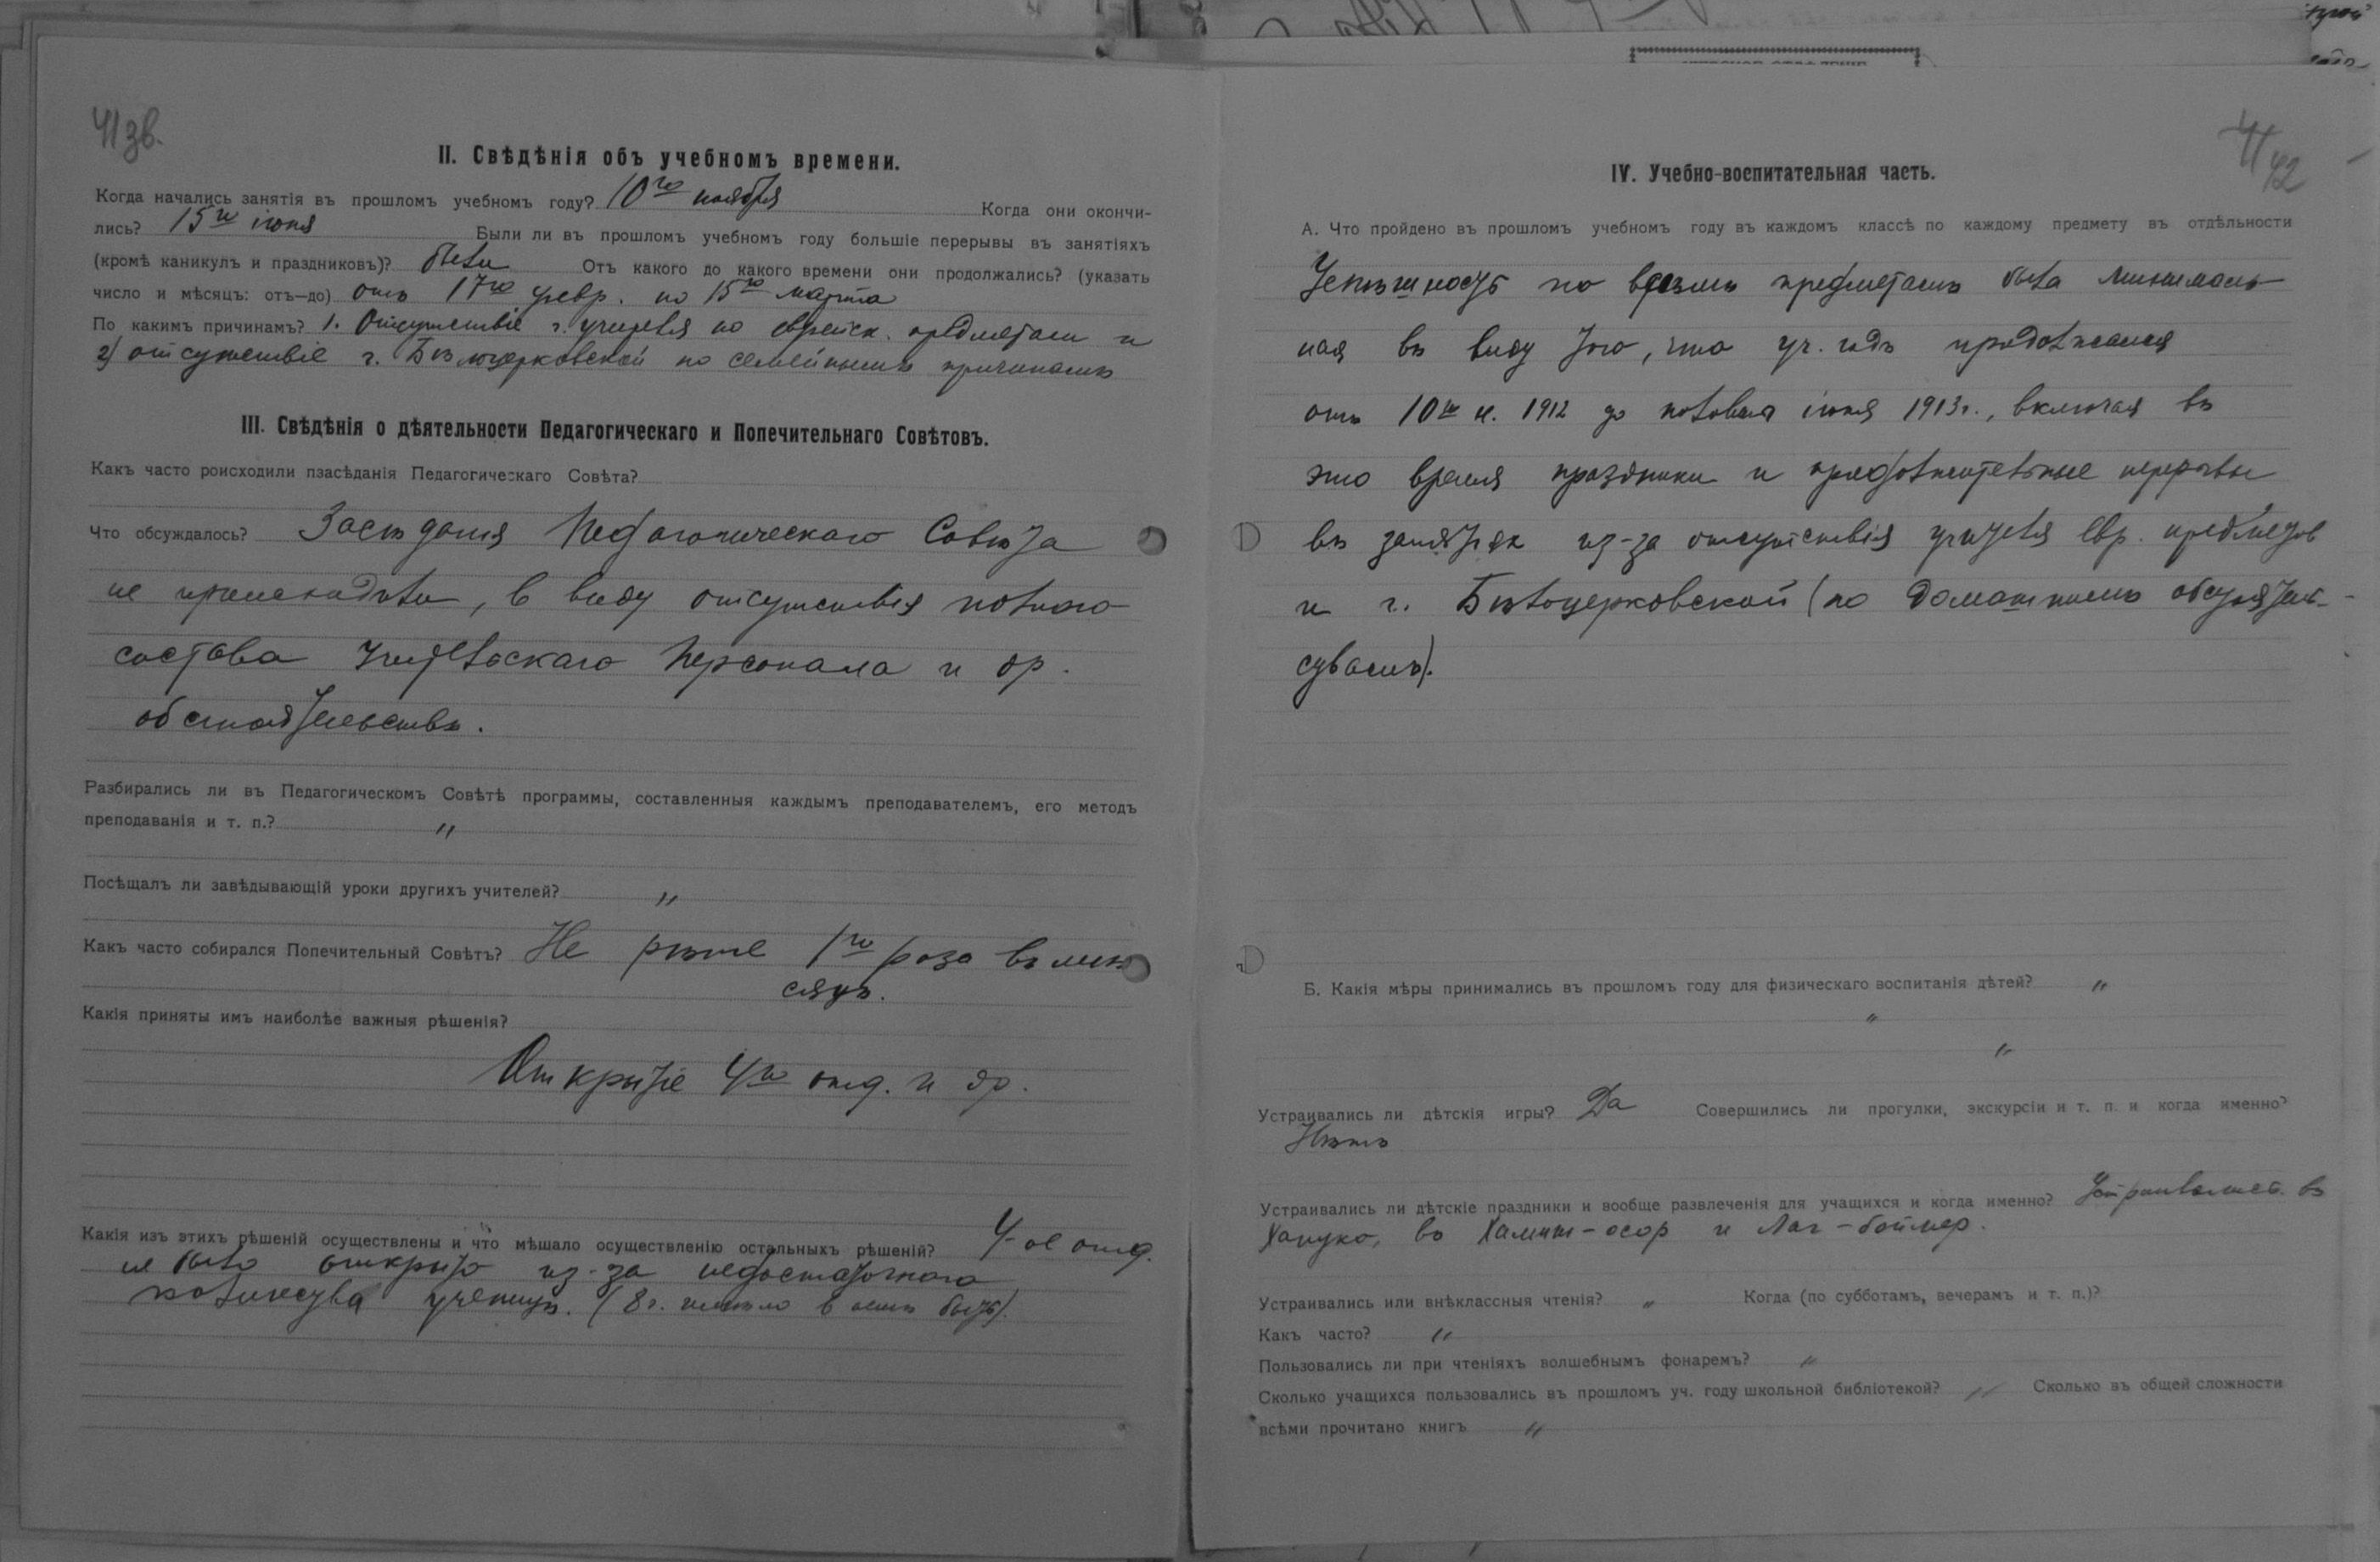 41 зв.
II. Свѣдѣнія объ учебномъ времени.
Когда начались занятія въ прошломъ учебномъ году? 10го ноября Когда они окончи-
лись? 15го іюня Были ли въ прошломъ учебномъ году большіе перерывы въ занятіяхъ
(кромѣ каникулъ и праздниковъ)? были Отъ какого до какого времени они продолжались? (указать
число и мѣсяцъ: отъ—до) отъ 17го февр. по 15го марта
По какимъ причинамъ? 1. Отсутствіе г. учителя по еврейск. предметам и
2) отсутствіе г. Бѣлоцерковской по семейнымъ причинамъ
III. Свѣдѣнія о дѣятельности Педагогическаго и Попечительнаго Совѣтовъ.
Какъ часто роисходили пзасѣданія Педагогическаго Совѣта?
Что обсуждалось? Засѣданія Педагогическаго Совѣта
не происходили, в виду отсутствія полнаго
состава Учительскаго Персонала и др.
обстоятельствъ.
Разбирались ли въ Педагогическомъ Совѣтѣ программы, составленныя каждымъ преподавателемъ, его методъ
преподаванія и т. п.? "
Посѣщалъ ли завѣдывающій уроки другихъ учителей? "
Какъ часто собирался Попечительный Совѣтъ? Не рѣже 1го раза въ мѣ
сяцъ.
Какія приняты имъ наиболѣе важныя рѣшенія?
Открытіе 4го отд. и др.
Какія изъ этихъ рѣшеній осуществлены и что мѣшало осуществленію остальныхъ рѣшеній? 4-ое отд.
не было открыто из-за недостаточнаго
количества учениц. (8 г. в нем быть).
41
42
IV. Учебно-воспитательная часть.
А. Что пройдено въ прошломъ учебномъ году въ каждомъ классѣ по каждому предмету въ отдѣльности
Успѣшность по всѣмъ предметамъ была минималь-
ная въ виду того, что уч. годъ продолжался
отъ 10го н. 1912 до половины іюня 1913 г., включая въ
это время праздники и продолжительные перерывы
въ занятіях из-за отсутствія учителя евр. предметов
и г. Бѣлоцерковской (по домашнимъ обстоятель-
ствамъ).
Б. Какія мѣры принимались въ прошломъ году для физическаго воспитанія дѣтей? "
"
"
Устраивались ли дѣтскія игры? Да Совершились ли прогулки, экскурсіи и т. п. и когда именно?
Нѣтъ
Устраивались ли дѣтскіе праздники и вообще развлеченія для учащихся и когда именно? Устраивались въ
Хануко, во Хамиш-осор и Лаг-боймер.
Устраивались или внѣклассныя чтенія? " Когда (по субботамъ, вечерамъ и т. п.)?
Какъ часто? "
Пользовались ли при чтеніяхъ волшебнымъ фонаремъ? "
Сколько учащихся пользовались въ прошломъ уч. году школьной библіотекой? " Сколько въ общей сложности
всѣми прочитано книгъ "